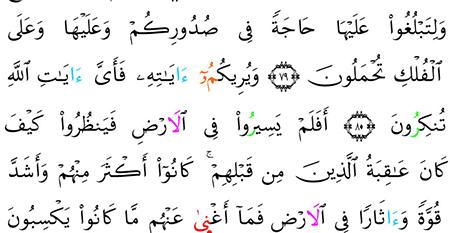 وَلِتَبْلُغُوا۟ عَلَيْهَا حَاجَةً فِى صُدُورِكُمْ وَعَلَيْهَا وَعَلَى
اَ۬لْفُلْكِ تُحْمَلُونَ ۝٧٩ وَيُرِيكُمُۥٓ ءَايَـٰتِهِۦ فَأَىَّ ءَايَـٰتِ اِ۬للَّهِ
تُنكِرُونَ ۝٨٠ أَفَلَمْ يَسِيرُوا۟ فِى اِ۬لَارْضِ فَيَنظُرُوا۟ كَيْفَ
كَانَ عَـٰقِبَةُ اُ۬لَّذِينَ مِن قَبْلِهِمْ ۚ كَانُوٓا۟ أَكْثَرَ مِنْهُمْ وَأَشَدَّ
قُوَّةً وَءَاثَارًا فِى اِ۬لَارْضِ فَمَآ أَغْنِىٰ عَنْهُم مَّا كَانُوا۟ يَكْسِبُونَ